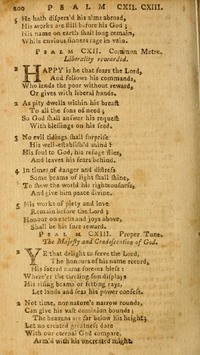 200 PSALM CXII. CXIII.
5 He hath dispers'd his alms abroad,
His works are still before his God;
His name on earth shall long remain,
While envious sinners rage in vain.
PSALM CXII. Common Metre.
Liberality rewarded.
HAPPY is he that fears the Lord,
And follows his commands,
Who lends the poor without reward,
Or gives with liberal hands.
2 As pity dwells within his breast
To all the sons of need;
So God shall answer his request
With blessings on his seed.
3 No evil tidings shall surprise
His well-establish'd mind:
His soul to God, his refuge flies,
And leaves his fears behind.
4 In times of danger and distress
Some beams of light shall shine,
To shew the world his righteousness,
And give him peace divine.
5 His works of piety and love
Remain before the Lord;
Honour on earth and joys above,
Shall be his sure reward.
PSALM CXIII. Proper Tune.
The Majesty and Condescention of God.
YE that delight to serve the Lord,
The honours of his name record,
His sacred name forever bless:
Where'er the circling sun displays
His rising beams or setting rays,
Let lands and seas his power confess.
2 Not time, nor nature's narrow rounds,
Can give his vast dominion bounds;
The heavens are far below his height;
Let no created greatness dare
With our eternal God compare,
Arm'd with his uncreated might.